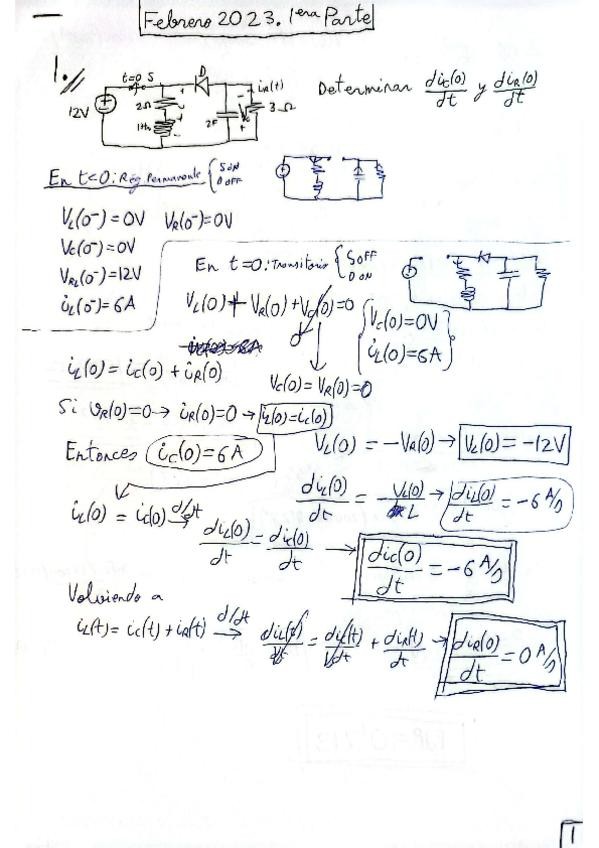 Febrero 2023. 1era Parte
1.//
t=0 S
D
iR(t)
12V
2Ω
1H
2F
3Ω
Determinar diC(0)/dt y diR(0)/dt
En t<0: Rég. Permanente { S ON
D OFF
VL(0-)=0V VR(0-)=0V
VC(0-)=0V
VRL(0-)=12V
iL(0-)=6A
En t=0: Transitorio { S OFF
D ON
VL(0)+VR(0)+VC(0)=0
0
{ VC(0)=0V
iL(0)=6A }
iL(0)=iC(0)+iR(0)
VC(0)=VR(0)=0
Si VR(0)=0→iR(0)=0→ iL(0)=iC(0)
Entonces iC(0)=6A
VL(0) = -VR(0)→ VL(0)=-12V
iL(0) = iC(0) d/dt→ diL(0)/dt = diC(0)/dt → diC(0)/dt = -6 A/s
diL(0)/dt = VL(0)/L → diL(0)/dt = -6 A/s
Volviendo a
iL(t)=iC(t)+iR(t) d/dt→ diL(t)/dt = diC(t)/dt + diR(t)/dt → diR(0)/dt = 0 A/s
1